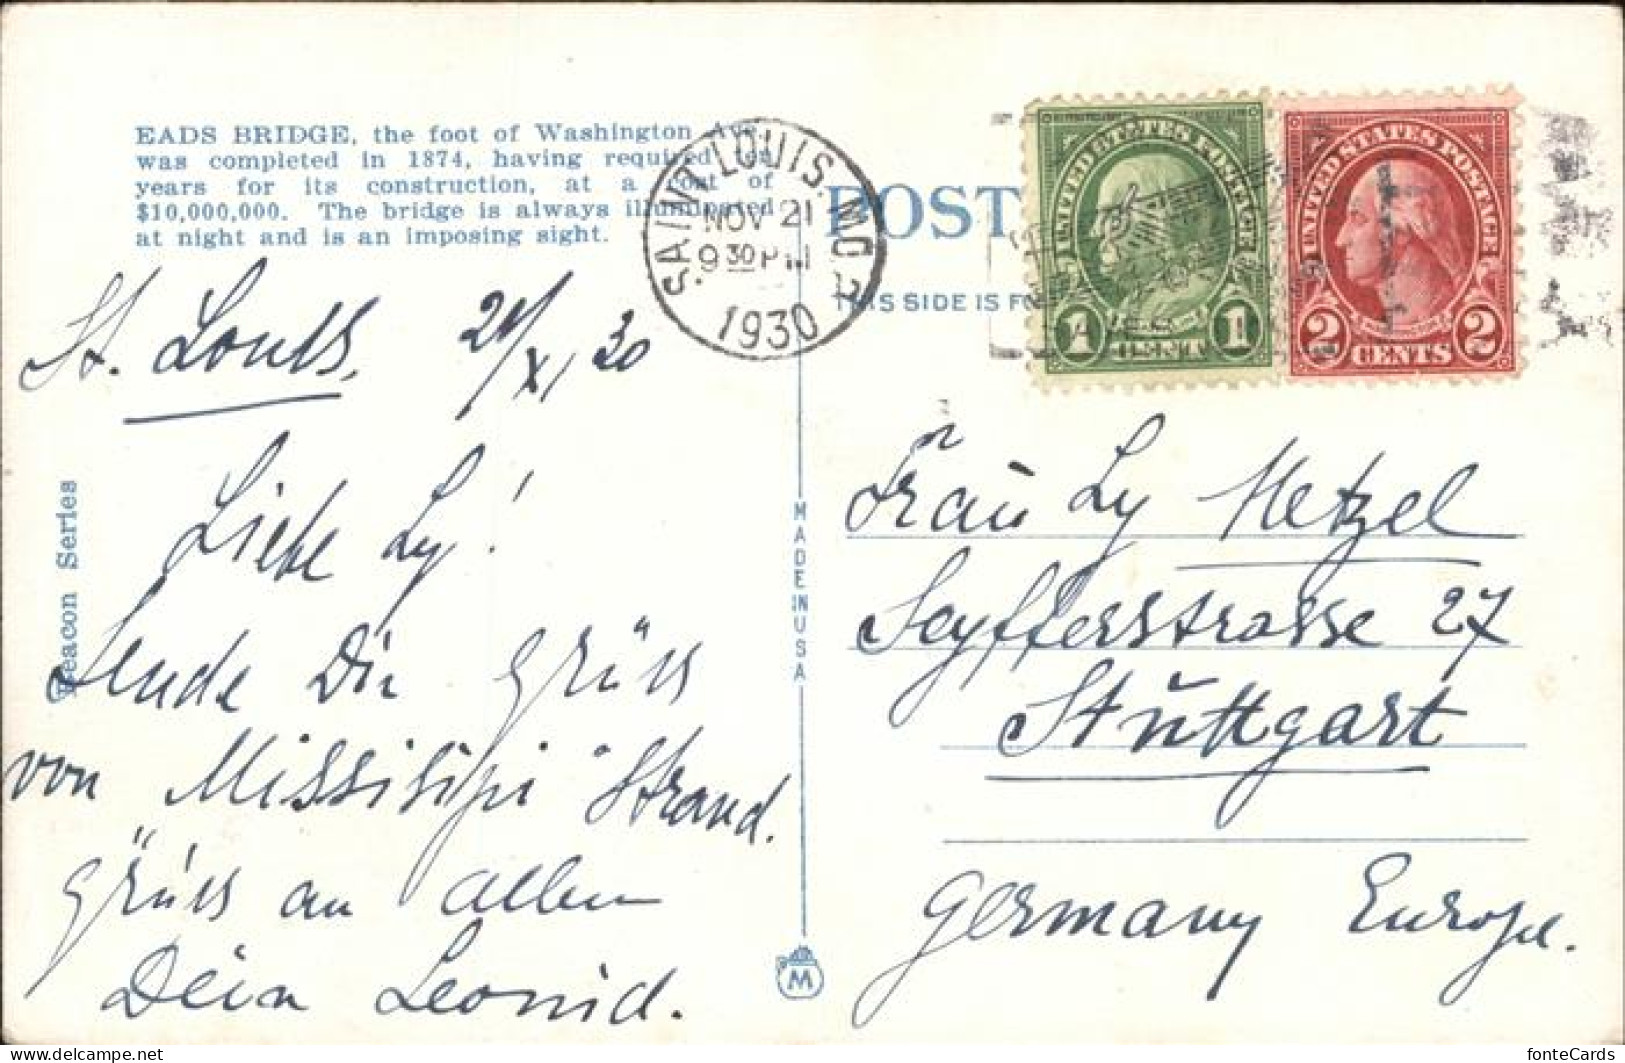 EADS BRIDGE, the foot of Washington Ave.
was completed in 1874, having required ten
years for its construction, at a cost of
$10,000,000. The bridge is always illuminated
at night and is an imposing sight.
SAINT LOUIS, MO.
NOV 21
9 30 PM
1930
POST
THIS SIDE IS FO
UNITED STATES POSTAGE
1 CENT 1
UNITED STATES POSTAGE
2 CENTS 2
St. Louis, 21/XI, 30
Liebe Ly!
Sende Dir Grüss
von Missisipi Strand.
Grüss an allen
Dein Leonid.
Beacon Series
MADE IN USA
M
Frau Ly Metzel
Seyfferstrasse 27
Stuttgart
Germany Europe.
fonteCards